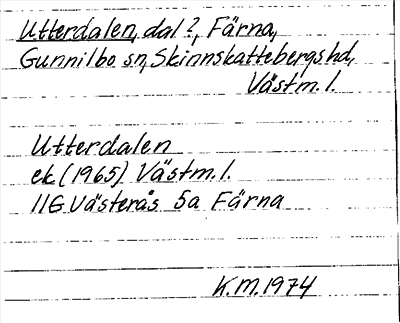 Utterdalen, dal?, Färna,
Gunnilbo sn, Skinnskattebergs hd,
Västm. l.
Utterdalen
ek (1965) Västm. l.
11G Västerås 5a Färna
K.M. 1974